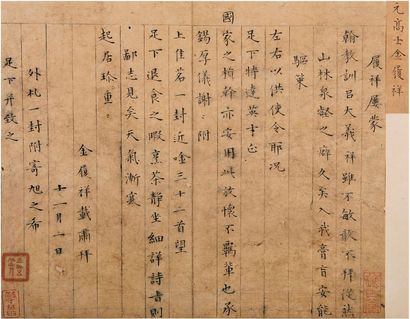 元高士金履祥
履祥屢蒙
翰教訓㠯大義祥雖不敏敢不拜從然
山林泉壑之癖久矣入我膏肓安能
驅策
左右以供使令耶況
足下特達英才正
國家之楨幹亦安用此放懷不羈輩也承
錫厚儀謝附
上佳茗一封近唫三十二首望
足下退食之暇烹茶靜坐細詳詩書則
鄙志見矣天氣漸寒
起居珍重
金履祥載肅拜
十一月一日
外札一封附寄旭之希
足下并致之